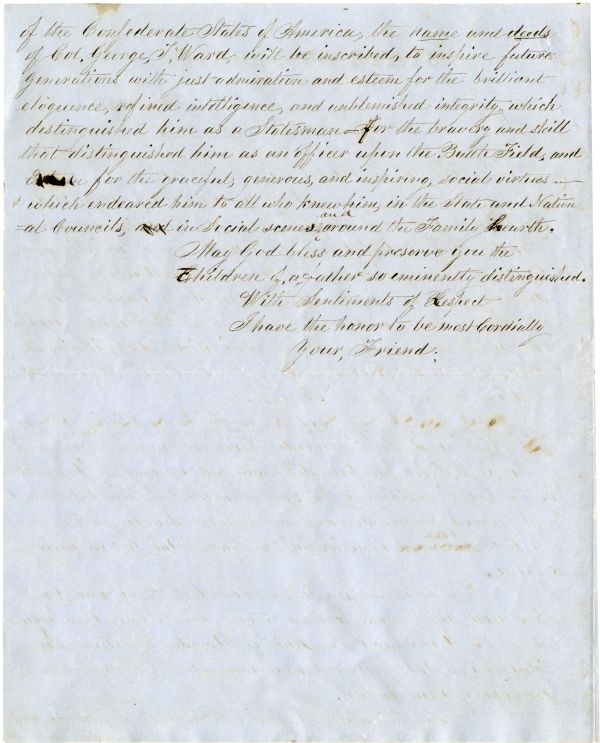 of the Confederate States of America, the name and deeds
of Col. George T. Ward, will be inscribed, to inspire future
generations with just admiration and esteem for the brilliant
eloquence, refined intelligence, and unblemished integrity, which
distinguished him as a Statesman – for the bravery and skill
that distinguished him as an officer upon the Battle Field, and
for the graceful, generous, and inspiring, social virtues —
which endeared him to all who knew him, in the State and Nation
=al Councils, in Social scenes, and around the Family hearth.
May God bless and preserve you the
Children of, a, Father so eminently distinguished.
With Sentiments of Respect
I have the honor to be most Cordially
Your, Friend.